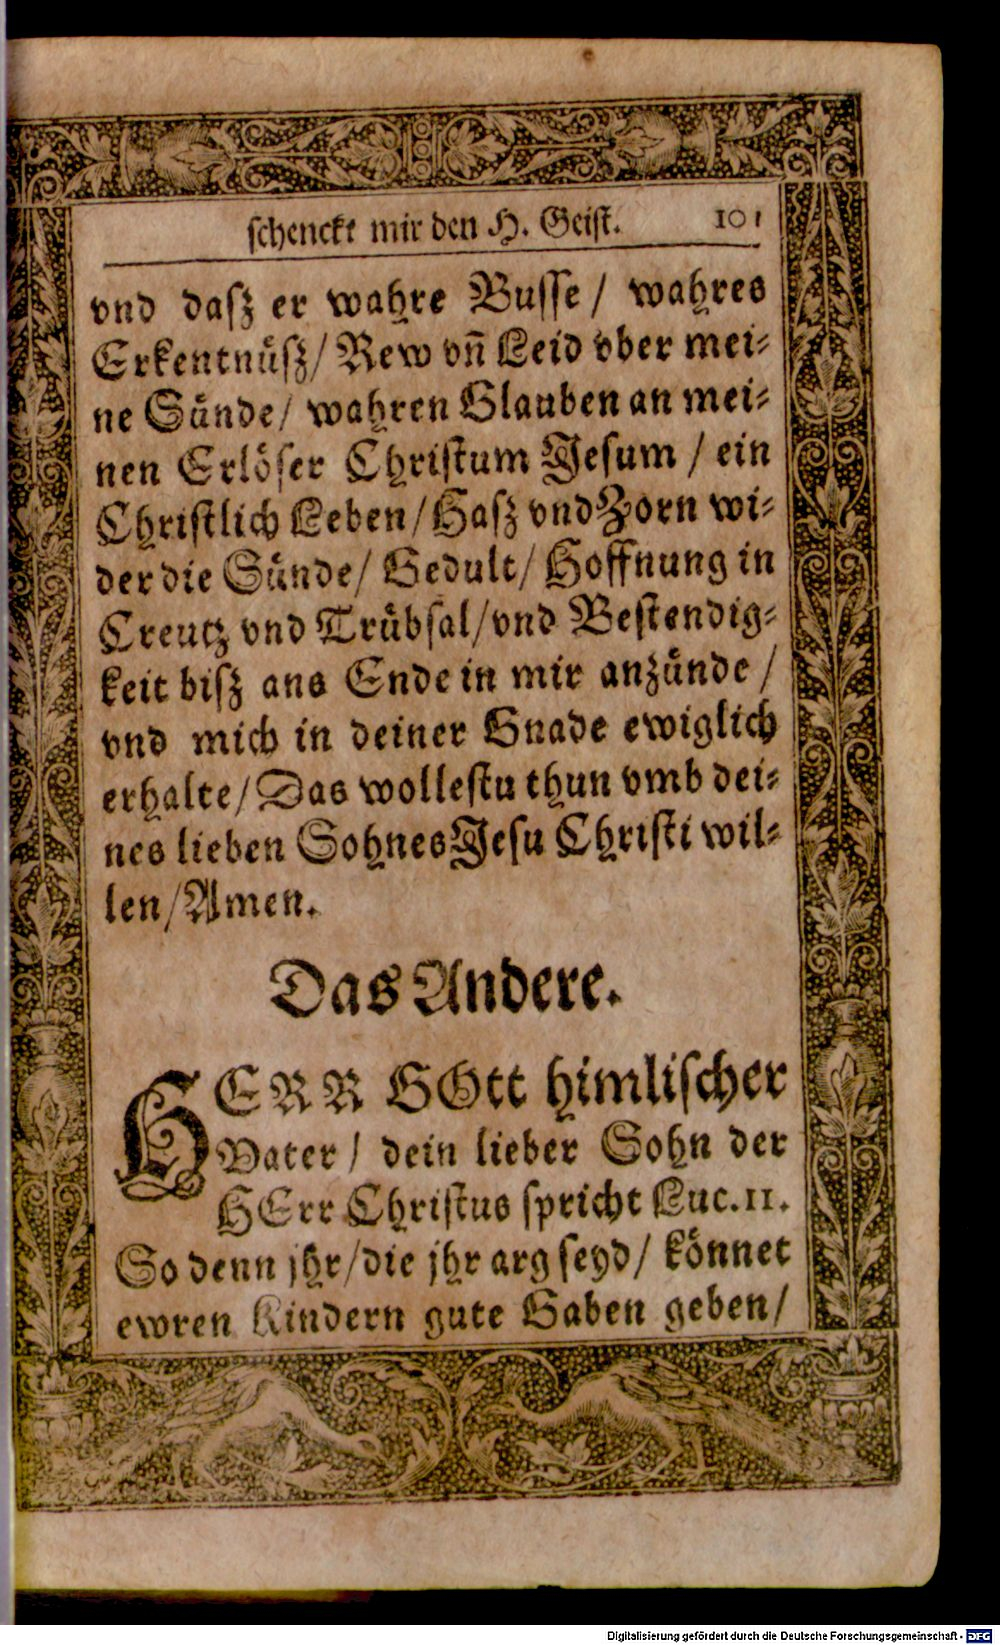 schenckt mir den H. Geist. 101
vnd dasz er wahre Busse / wahres
Erkentnüsz / Rew vñ Leid vber mei-
ne Sünde / wahren Glauben an mei-
nen Erlöser Christum Jesum / ein
Christlich Leben / Hasz vnd Zorn wi-
der die Sünde / Gedult / Hoffnung in
Creutz vnd Trübsal / vnd Bestendig-
keit bisz ans Ende in mir anzünde /
vnd mich in deiner Gnade ewiglich
erhalte / Das wollestu thun vmb dei-
nes lieben Sohnes Jesu Christi wil-
len / Amen.
Das Andere.
HERR GOtt himlischer
Vater / dein lieber Sohn der
HErr Christus spricht Luc. 11.
So denn jhr / die jhr arg seyd / könnet
ewren Kindern gute Gaben geben /
Digitalisierung gefördert durch die Deutsche Forschungsgemeinschaft - DFG